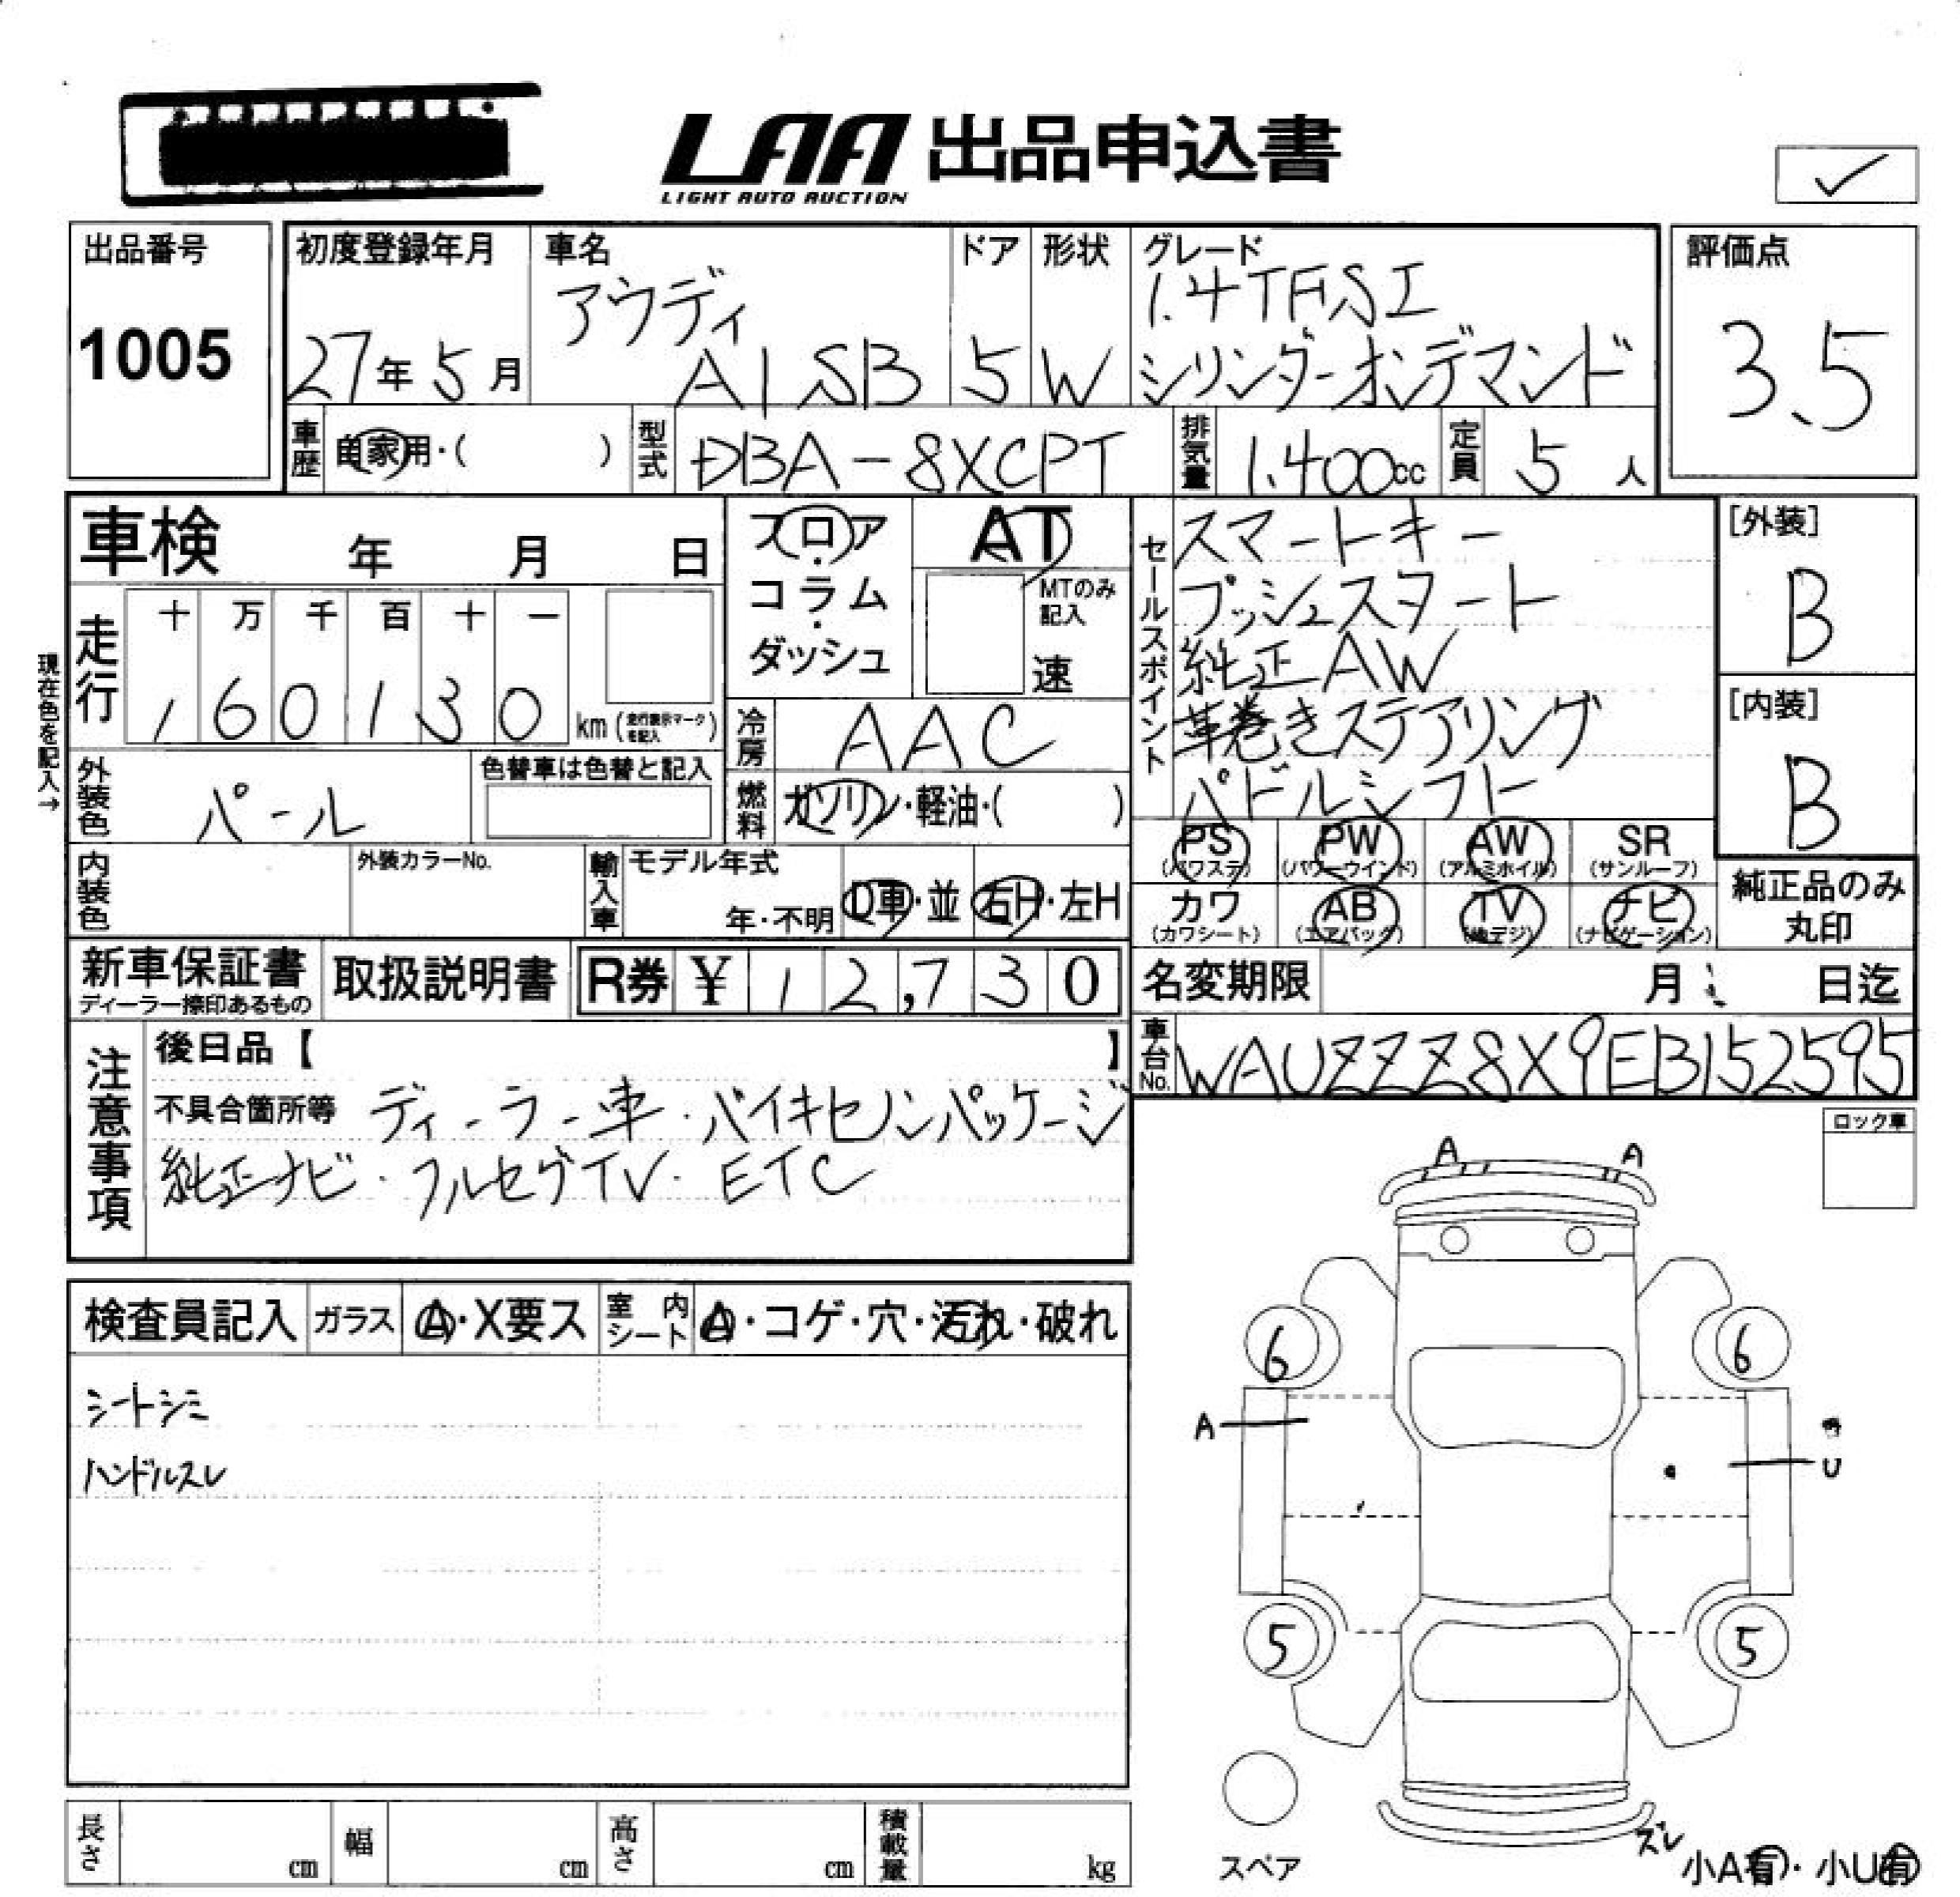 LAA 出品申込書
LIGHT AUTO AUCTION
✓
出品番号
1005
初度登録年月
27年5月
車名
アウディ
A1 SB
ドア
5
形状
W
グレード
1.4TFSI
シリンダーオンデマンド
評価点
3.5
車歴
自家用・( )
型式
DBA-8XCPT
排気量
1,400cc
定員
5人
車検 年 月 日
フロア・コラム・ダッシュ
AT
MTのみ記入
速
セールスポイント
スマートキー
プッシュスタート
純正AW
革巻きステアリング
パドルシフト
[外装]
B
[内装]
B
現在色を記入→
走行
十 万 千 百 十 一
1 6 0 1 3 0 km (走行表示マークを記入)
冷房
AAC
外装色
パール
色替車は色替と記入
燃料
ガソリン・軽油・( )
PS (パワステ)
PW (パワーウインド)
AW (アルミホイル)
SR (サンルーフ)
カワ (カワシート)
AB (エアバッグ)
TV (地デジ)
ナビ (ナビゲーション)
純正品のみ丸印
内装色
外装カラーNo.
輸入車
モデル年式
年・不明
D車・並
右H・左H
新車保証書
ディーラー捺印あるもの
取扱説明書
R券 ¥ 12,730
名変期限 月 日迄
車台No.
WAUZZZ8X9EB152595
注意事項
後日品【 】
不具合箇所等 ディーラー車・バイキセノンパッケージ
純正ナビ・フルセグTV・ETC
ロック車
A A
検査員記入
ガラス
A・X要ス
室内シート
A・コゲ・穴・汚れ・破れ
シートシミ
ハンドルスレ
6 6
A
U
5 5
スペア
ズレ
小A有・小U有
長さ cm
幅 cm
高さ cm
積載量 kg